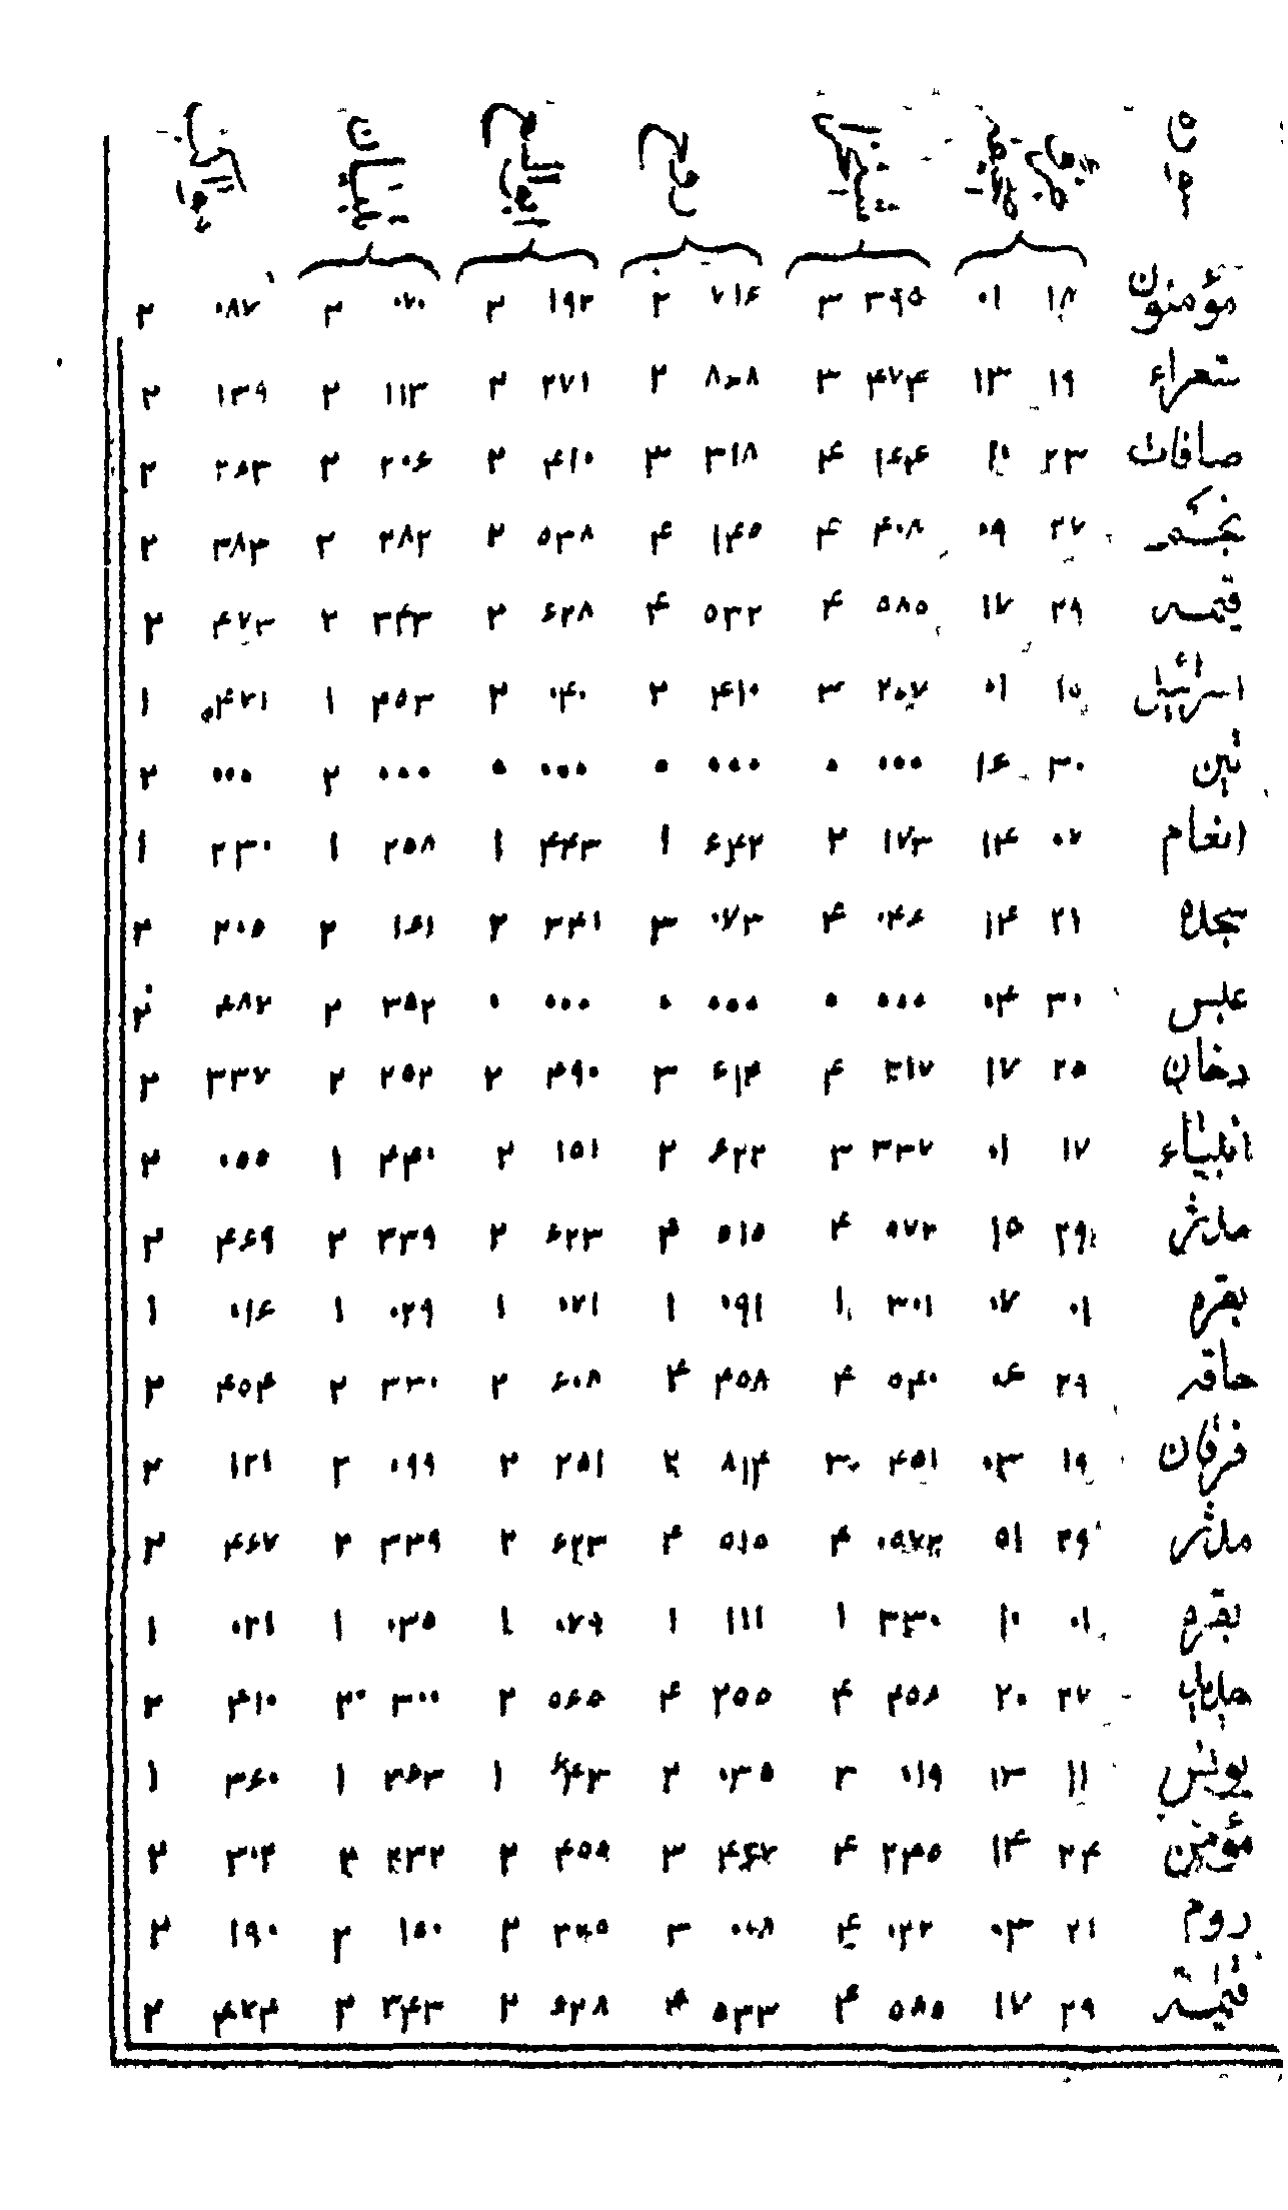 مؤمنون ۱۸ ۰۱ ۳۹۵ ۳ ۷۱۶ ۲ ۱۹۲ ۲ ۰۷۰ ۲ ۰۸۷ ۲
شعراء ۱۹ ۱۳ ۴۷۴ ۳ ۸۰۸ ۲ ۲۷۱ ۲ ۱۱۳ ۲ ۱۳۹ ۲
صافات ۲۳ ۱۰ ۱۶۴ ۴ ۳۱۸ ۳ ۴۱۰ ۲ ۲۰۶ ۲ ۲۶۳ ۲
نجم ۲۷ ۰۹ ۴۰۸ ۴ ۱۴۵ ۴ ۵۳۸ ۲ ۲۸۲ ۲ ۳۸۳ ۲
قیمة ۲۹ ۱۷ ۵۸۵ ۴ ۵۳۲ ۴ ۶۲۸ ۲ ۳۴۳ ۲ ۴۷۳ ۲
اسرائیل ۱۵ ۰۱ ۲۰۷ ۳ ۴۱۰ ۲ ۰۴۰ ۲ ۴۵۳ ۱ ۴۲۱ ۱
تین ۳۰ ۱۶ ۰۰۰ ۰ ۰۰۰ ۰ ۰۰۰ ۰ ۰۰۰ ۲ ۰۰۰ ۲
انعام ۰۷ ۱۴ ۱۷۳ ۲ ۶۴۲ ۱ ۴۴۳ ۱ ۲۵۸ ۱ ۲۳۰ ۱
سجده ۲۱ ۱۴ ۰۴۶ ۴ ۰۷۳ ۳ ۳۴۱ ۲ ۱۶۱ ۲ ۲۰۵ ۲
عبس ۳۰ ۰۴ ۰۰۰ ۰ ۰۰۰ ۰ ۰۰۰ ۰ ۳۵۲ ۲ ۴۸۲ ۲
دخان ۲۵ ۱۷ ۳۱۷ ۴ ۶۱۴ ۳ ۴۹۰ ۲ ۲۵۲ ۲ ۳۳۷ ۲
انبیاء ۱۷ ۰۱ ۳۳۷ ۳ ۶۲۲ ۲ ۱۵۱ ۲ ۴۴۰ ۱ ۰۵۵ ۲
مدثر ۲۹ ۱۵ ۵۷۲ ۴ ۵۱۵ ۴ ۶۲۳ ۲ ۳۳۹ ۲ ۴۶۹ ۲
بقره ۰۱ ۰۷ ۳۰۱ ۱ ۰۹۱ ۱ ۰۷۱ ۱ ۰۲۹ ۱ ۰۱۶ ۱
حاقه ۲۹ ۰۶ ۵۴۰ ۴ ۴۵۸ ۴ ۶۰۸ ۲ ۳۳۰ ۲ ۴۵۴ ۲
فرقان ۱۹ ۰۳ ۴۵۱ ۳ ۸۱۴ ۲ ۲۵۱ ۲ ۰۹۹ ۲ ۱۲۱ ۲
مدثر ۲۹ ۵۱ ۰۵۷۲ ۴ ۵۱۵ ۴ ۶۲۳ ۲ ۳۳۹ ۲ ۴۶۷ ۲
بقره ۰۱ ۱۰ ۳۳۰ ۱ ۱۱۱ ۱ ۰۷۹ ۱ ۰۳۵ ۱ ۰۲۱ ۱
حدید ۲۷ ۲۰ ۴۵۶ ۴ ۲۵۵ ۴ ۵۶۵ ۲ ۳۰۰ ۲ ۴۱۰ ۲
یونس ۱۱ ۱۳ ۰۱۹ ۳ ۰۳۵ ۲ ۶۴۳ ۱ ۳۶۳ ۱ ۳۶۰ ۱
مؤمن ۲۴ ۱۴ ۲۳۵ ۴ ۴۶۷ ۳ ۴۵۹ ۲ ۲۳۲ ۲ ۳۰۴ ۲
روم ۲۱ ۰۳ ۰۲۲ ۴ ۰۰۸ ۳ ۳۲۵ ۲ ۱۵۰ ۲ ۱۹۰ ۲
قیمة ۲۹ ۱۷ ۵۸۵ ۴ ۵۳۳ ۴ ۶۲۸ ۲ ۳۴۳ ۲ ۴۷۴ ۲